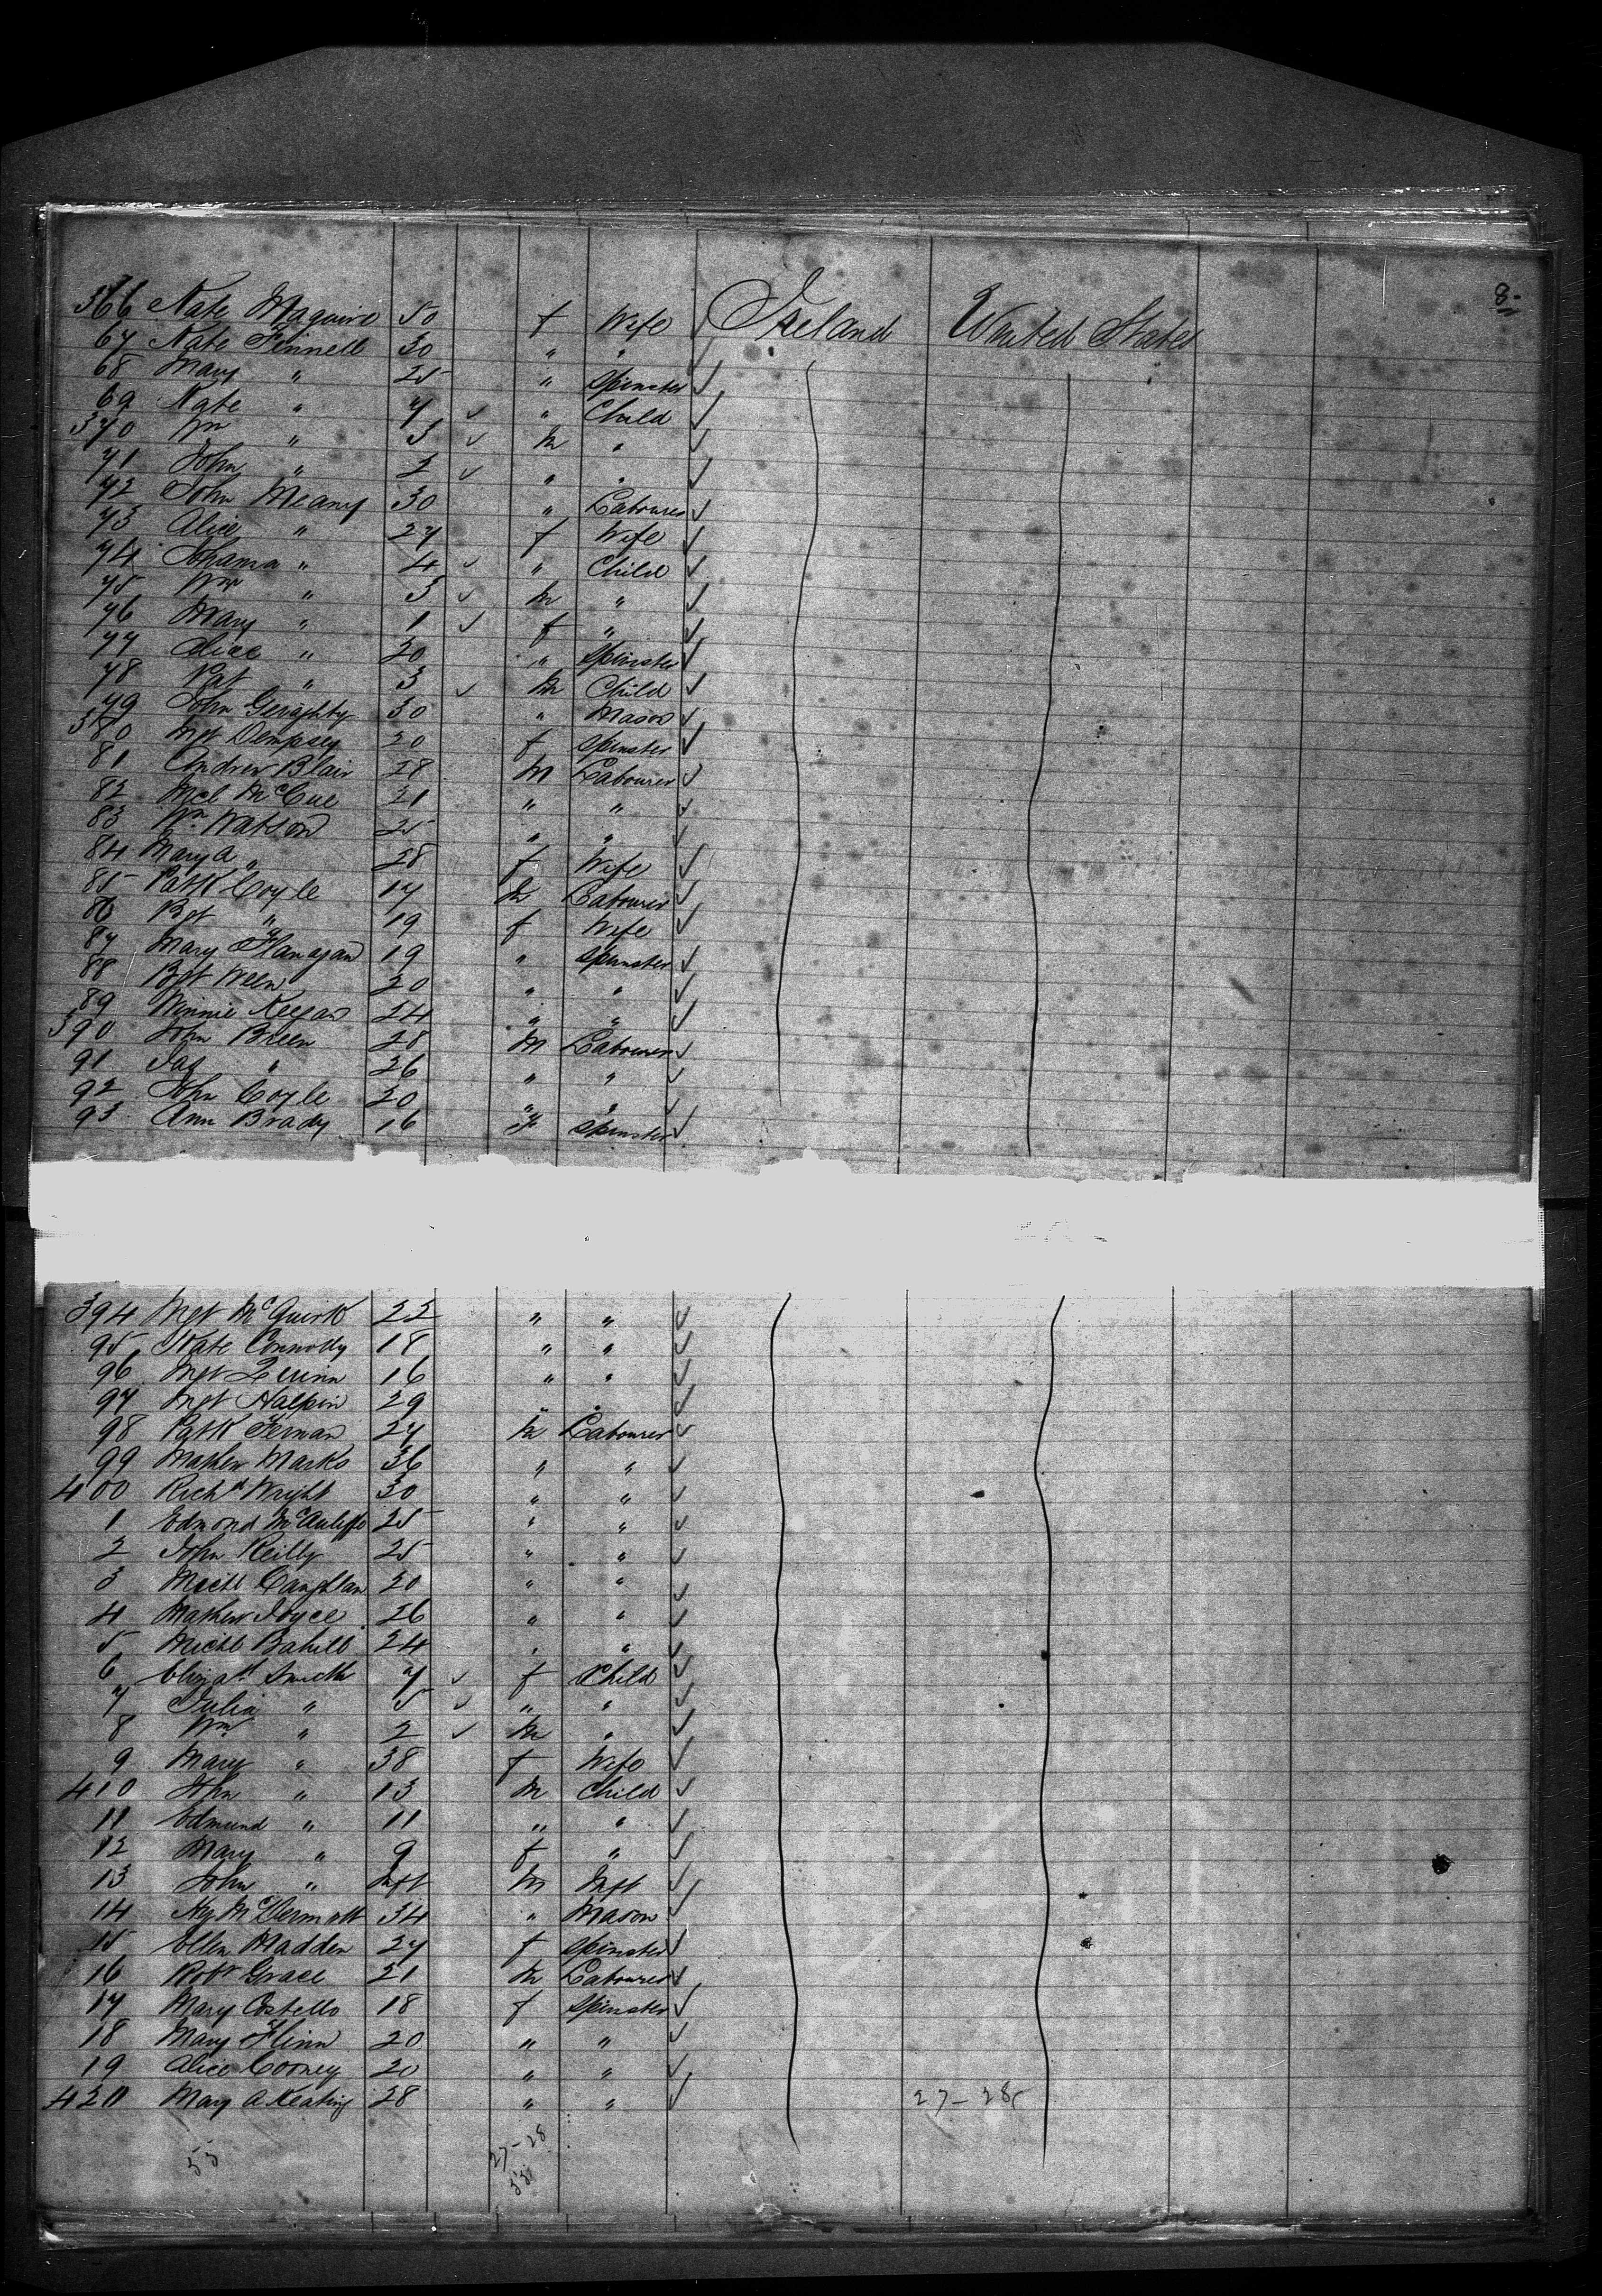 8-
366 Kate Maguire 50 f Wife Ireland United States
67 Kate Fennell 30 " "
68 Mary " 25 " Spinster
69 Kate " 7 " Child
370 Wm " 3 m "
71 John " 2 " "
72 John Meany 30 " Labourer
73 Alice " 27 f Wife
74 Johanna " 4 " Child
75 Wm " 3 m "
76 Mary " 1 f "
77 Alice " 20 " Spinster
78 Pat " 3 m Child
79 John Geraghty 30 " Mason
380 Mgt Dempsey 20 f Spinster
81 Andrew Blair 28 m Labourer
82 Mcl McCue 21 " "
83 Wm Watson 25 " "
84 Mary A " 28 f Wife
85 Patk Coyle 17 m Labourer
86 Bgt " 19 f Wife
87 Mary Flanagan 19 " Spinster
88 Bgt 20 " "
89 Winnie Keegan 24 " "
390 John Breen 28 m Labourer
91 Jas " 26 " "
92 John Coyle 20 " "
93 Ann Brady 16 f Spinster
394 Mgt McQuirk 22 " "
95 Kate Connolly 18 " "
96 Mgt Quinn 16 " "
97 Mgt Halpin 29 " "
98 Patk 27 m Labourer
99 Mathew Marks 36 " "
400 Richd Wright 30 " "
1 Edmond McAuliffe 25 " "
2 John Reilly 25 " "
3 Michl Caughlan 20 " "
4 Mathew Joyce 26 " "
5 Michl Bahill 24 " "
6 Elizath Smith 7 f Child
7 Julia " 5 " "
8 Wm " 2 m "
9 Mary " 38 f Wife
410 John " 13 m Child
11 Edmund " 11 " "
12 Mary " 9 f "
13 John " Inft m Inft
14 Hy McDermott 34 " Mason
15 Ellen Madden 27 f Spinster
16 Robt Grace 21 m Labourer
17 Mary Costello 18 f Spinster
18 Mary Flinn 20 " "
19 Alice Cooney 20 " "
420 Mary A Keating 28 " " 27-28
55 27-28
55